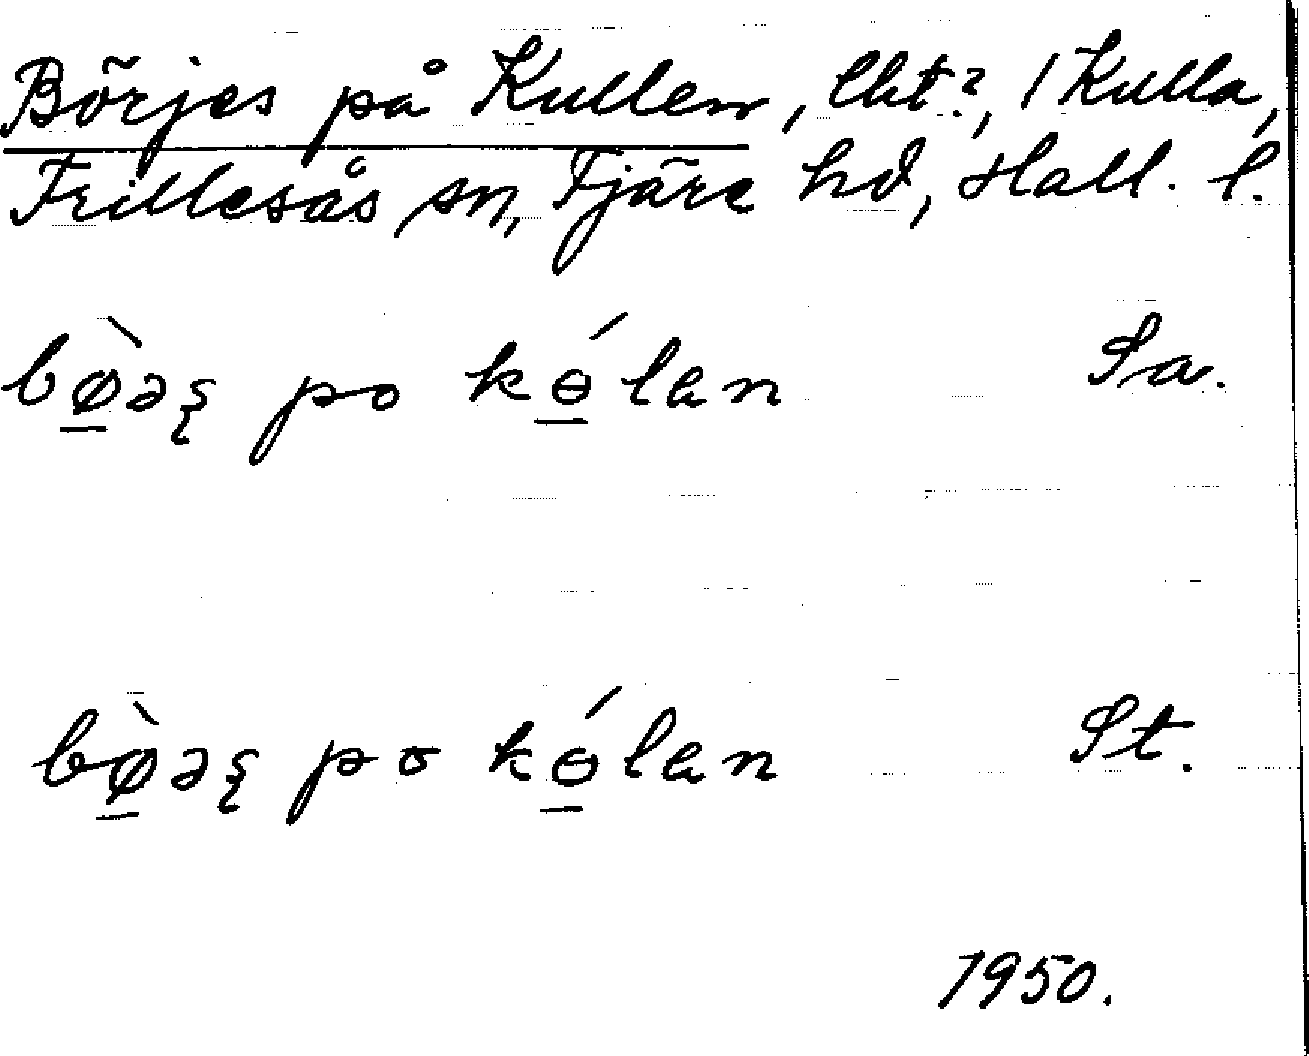 Börjes på Kullen, lht?, 1 Kulla,
Frillesås sn, Fjäre hd, Hall. l.
bø̲̀əʂ po kө̲́lan Sa.
bø̲̀əʂ po kө̲́lan St.
1950.